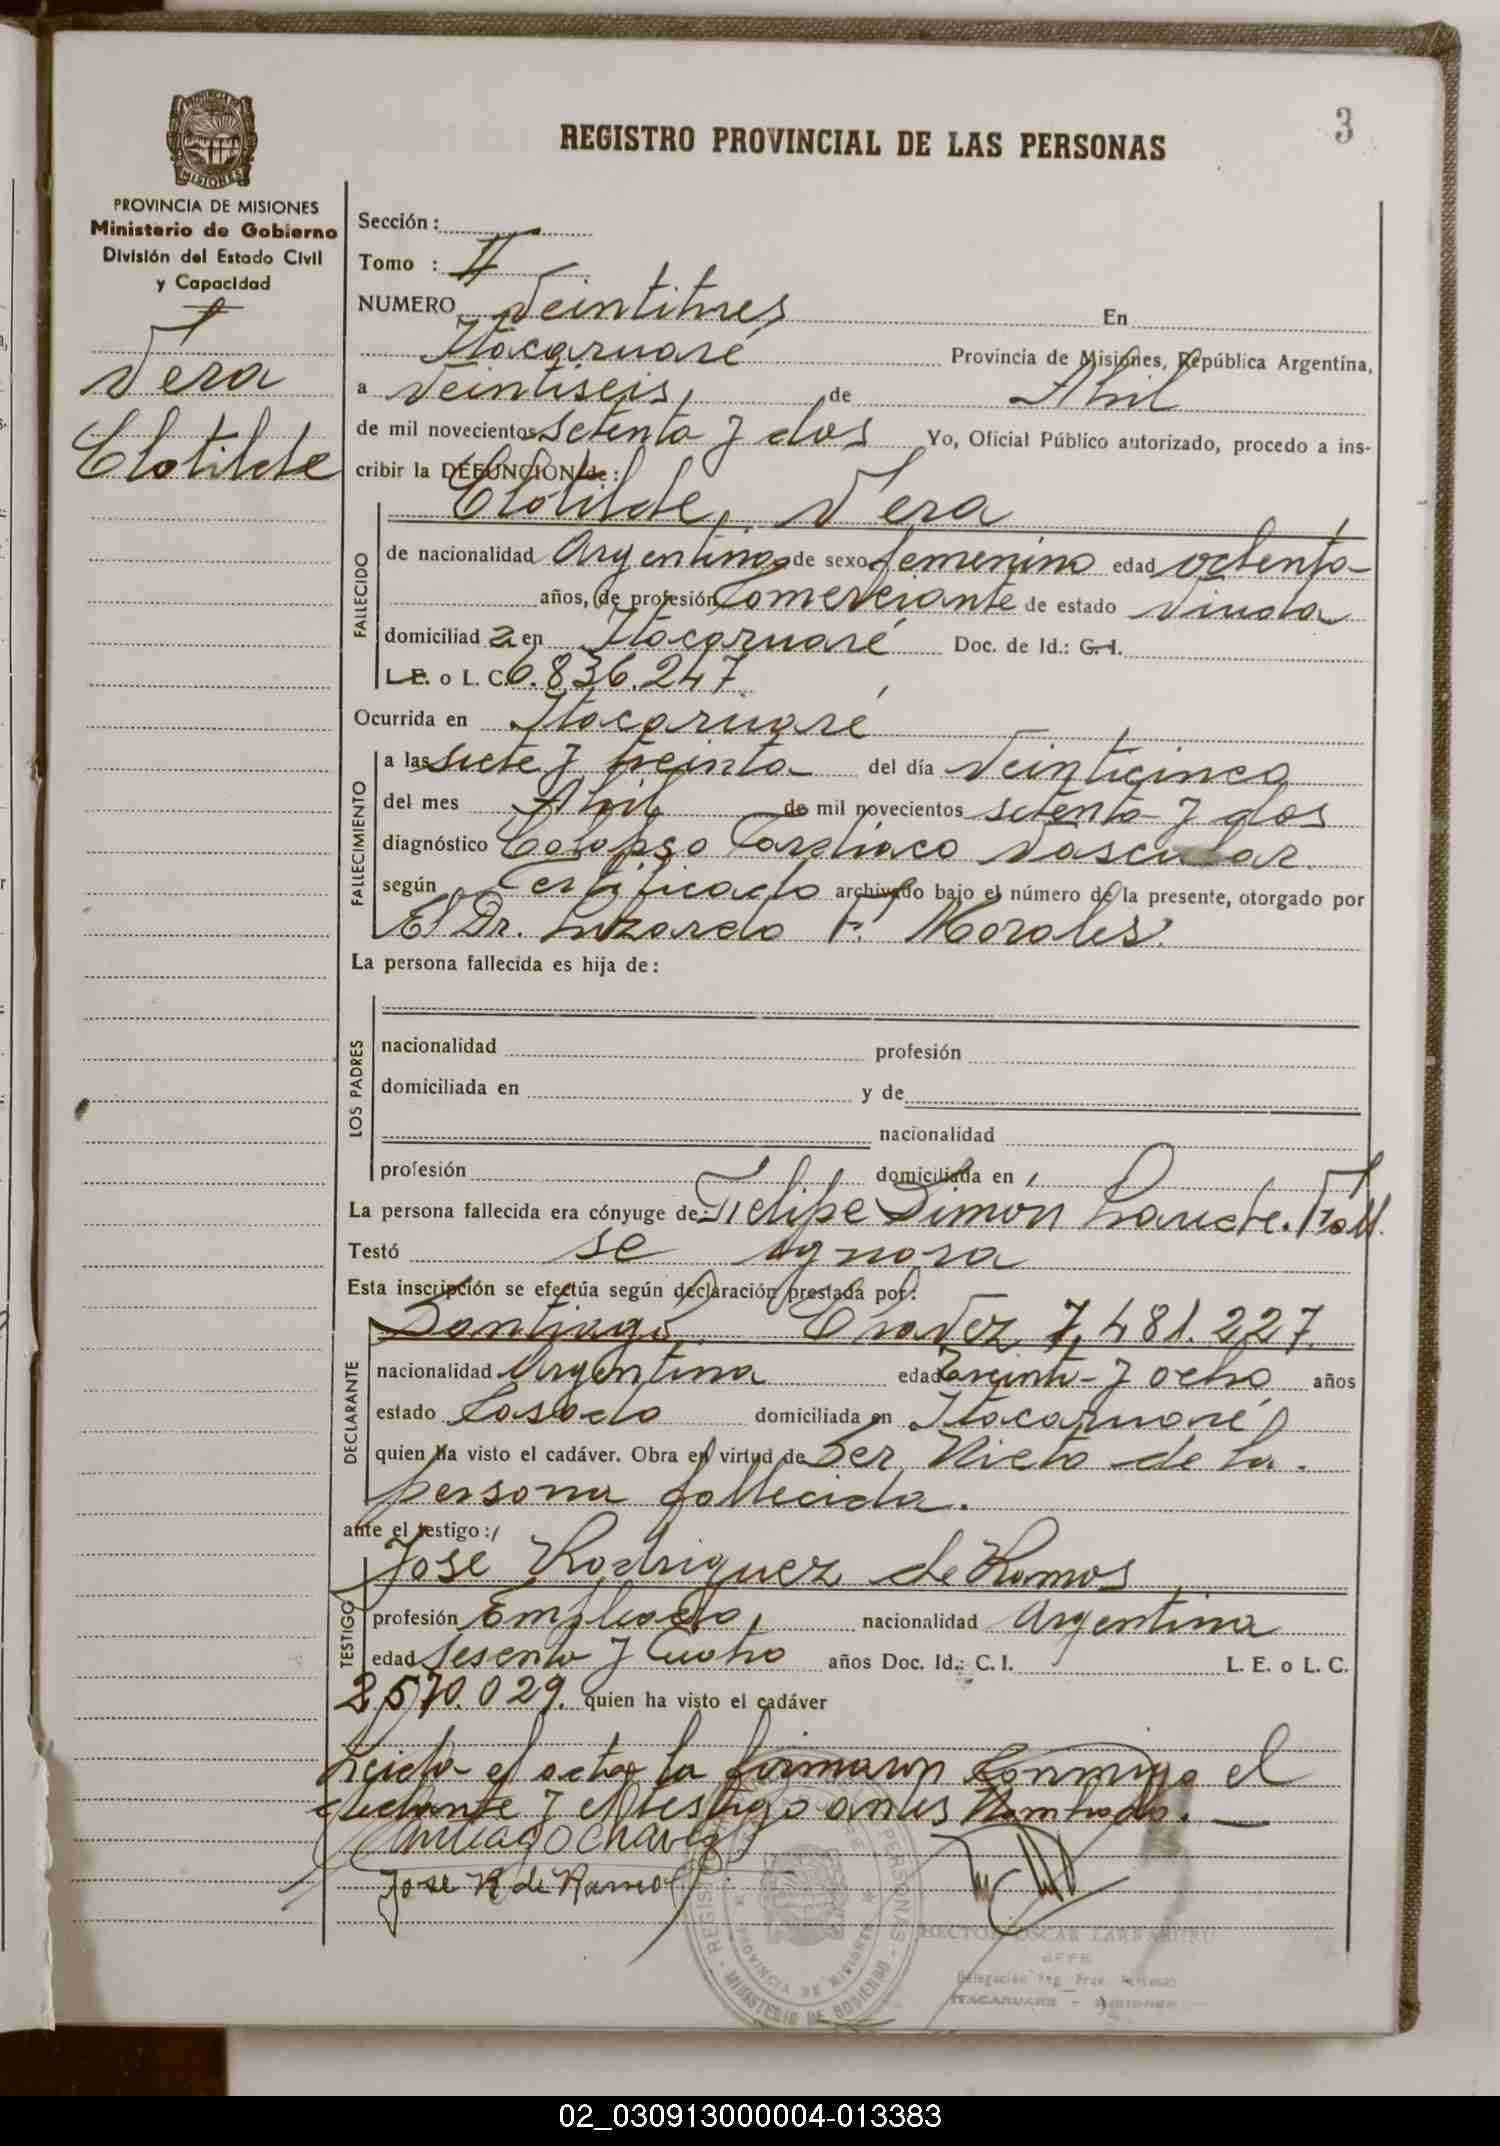 3
REGISTRO PROVINCIAL DE LAS PERSONAS
PROVINCIA DE MISIONES
Ministerio de Gobierno
División del Estado Civil
y Capacidad
Vera
Clotilde
Sección:
Tomo : II
NUMERO Veintitres En
Itacaruaré Provincia de Misiones, República Argentina,
a Veintiseis, de Abril
de mil novecientos setenta y dos Yo, Oficial Público autorizado, procedo a ins-
cribir la DEFUNCION de:
Clotilde, Vera
FALLECIDO
de nacionalidad Argentina de sexo femenino edad ochenta
años, de profesión Comerciante de estado Viuda
domiciliad a en Itacaruaré Doc. de Id.: C. I.
L.E. o L. C. 6.836.247
Ocurrida en Itacaruaré
FALLECIMIENTO
a las siete y treinta del día Veinticinco
del mes Abril de mil novecientos setenta y dos
diagnóstico Colapso Cardiaco Vascular.
según Certificado archivado bajo el número de la presente, otorgado por
El Dr. Luzardo F. Morales.
La persona fallecida es hija de:
LOS PADRES
nacionalidad profesión
domiciliada en y de
nacionalidad
profesión domiciliada en
La persona fallecida era cónyuge de: Felipe Simon
Testó se ignora
Esta inscripción se efectúa según declaración prestada por:
Santiago Chavez 7.481.227.
DECLARANTE
nacionalidad Argentina edad Treinta y ocho años
estado Casado domiciliada en Itacaruaré
quien ha visto el cadáver. Obra en virtud de Ser Nieto de la
persona fallecida.
ante el testigo:
José Rodriguez de Ramos
TESTIGO
profesión Empleado, nacionalidad Argentina
edad Sesenta y Cuatro años Doc. Id.: C. I. L. E. o L. C.
2.570.029. quien ha visto el cadáver
Leida el acta la firmaron Conmigo el
y el testigo antes Nombrado.
Santiago Chavez
Jose R de Ramos
HECTOR OSCAR
JEFE
ITACARUARE - MISIONES
MINISTERIO DE GOBIERNO
PROVINCIA DE MISIONES
02_030913000004-013383